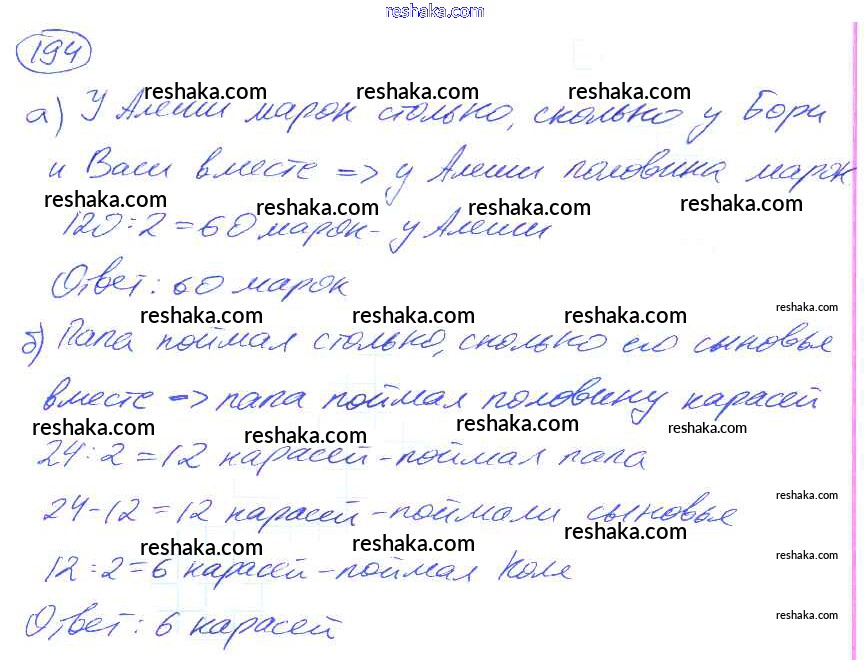 reshaka.com
194
reshaka.com reshaka.com reshaka.com
а) У Алеши марок столько, сколько у Бори
и Васи вместе => у Алеши половина марок
reshaka.com reshaka.com reshaka.com reshaka.com
120:2=60 марок - у Алеши
Ответ: 60 марок
reshaka.com reshaka.com reshaka.com reshaka.com
б) Папа поймал столько, сколько его сыновья
вместе => папа поймал половину карасей
reshaka.com reshaka.com reshaka.com reshaka.com
24:2=12 карасей - поймал папа
reshaka.com
24-12=12 карасей - поймали сыновья
reshaka.com reshaka.com reshaka.com reshaka.com
12:2=6 карасей - поймал Коля
reshaka.com
Ответ: 6 карасей